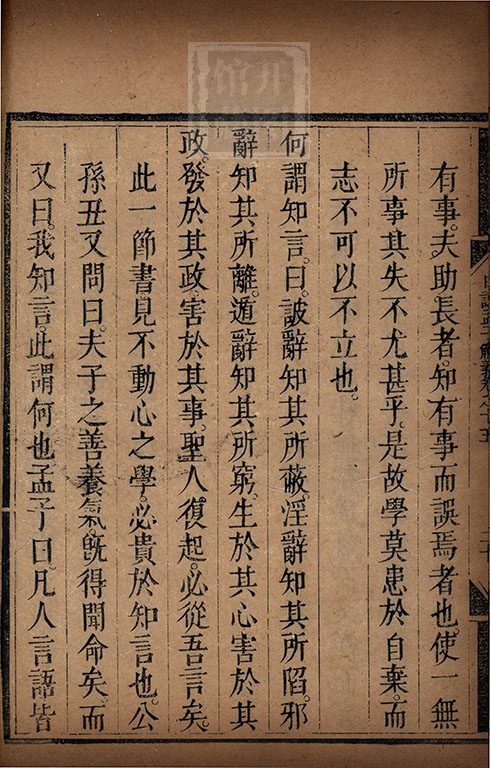 有事。夫助長者。知有事而誤焉者也。使一無
所事其失不尤甚乎。是故學莫患於自棄。而
志不可以不立也。
何謂知言。曰。詖辭知其所蔽。淫辭知其所陷。邪
辭知其所離。遁辭知其所窮。生於其心害於其
政。發於其政害於其事。聖人復起。必從吾言矣。
此一節書見不動心之學。必貴於知言也。公
孫丑又問曰。夫子之善養氣。旣得聞命矣。而
又曰。我知言。此謂何也孟子曰。凡人言語皆